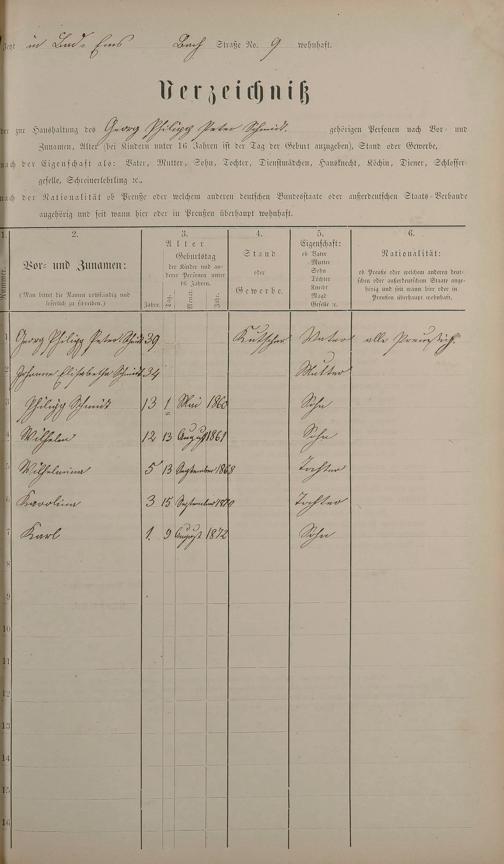 Jetzt in Bad-Ems Bach Straße No. 9 wohnhaft.
Verzeichniß
der zur Haushaltung des Georg Philipp Peter Schmidt. gehörigen Personen nach Vor- und
Zunamen, Alter (bei Kindern unter 16 Jahren ist der Tag der Geburt anzugeben), Stand oder Gewerbe,
nach der Eigenschaft als: Vater, Mutter, Sohn, Tochter, Dienstmädchen, Hausknecht, Köchin, Diener, Schlosser-
geselle, Schreinerlehrling ꝛc.,
nach der Nationalität ob Preuße oder welchem anderen deutschen Bundesstaate oder außerdeutschen Staats-Verbande
angehörig und seit wann hier oder in Preußen überhaupt wohnhaft.
1. 2. 3. 4. 5. 6.
Nummer.
Vor- und Zunamen:
(Man bittet die Namen vollständig und
leserlich zu schreiben.)
Alter
Geburtstag
der Kinder und an-
derer Personen unter
16 Jahren.
Jahre. Tag. Monat. Jahr.
Stand
oder
Gewerbe.
Eigenschaft:
ob Vater
Mutter
Sohn
Tochter
Knecht
Magd
Geselle ꝛc.
Nationalität:
ob Preuße oder welchem anderen deut-
schen oder außerdeutschen Staate ange-
hörig und seit wann hier oder in
Preußen überhaupt wohnhaft.
1 Georg Philipp Peter Schmidt 39 Kutscher Vater alle Preussisch.
2 Johanne Elisabethe Schmidt 34 Mutter
3 Philipp Schmidt 13 1 Mai 1860 Sohn
4 Wilhelm 12 13 August 1861 Sohn
5 Wilhelmina 5 13 September 1868 Tochter
6 Karolina 3 15 September 1870 Tochter
7 Karl 1 9 August 1872 Sohn
8
9
10
11
12
13
14
15
16